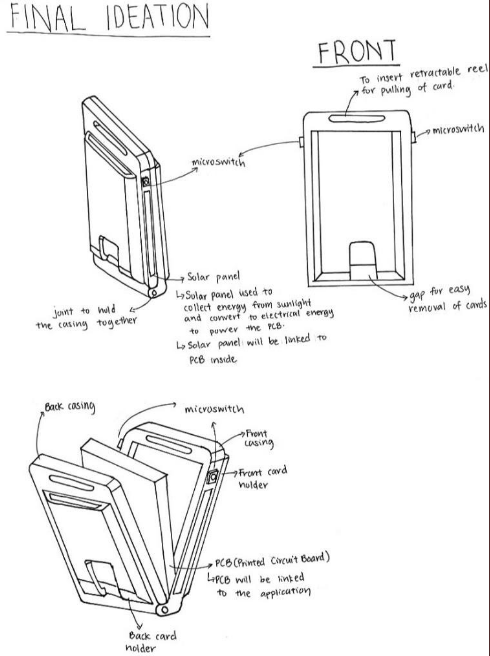 FINAL IDEATION
FRONT
To insert retractable reel
for pulling of card.
microswitch
microswitch
Solar panel
↳ Solar panel used to
collect energy from sunlight
and convert to electrical energy
to power the PCB.
↳ Solar panel will be linked to
PCB inside
joint to hold
the casing together
gap for easy
removal of cards
Back casing
microswitch
Front
casing
Front card
holder
PCB (Printed Circuit Board)
↳ PCB will be linked
to the application
Back card
holder